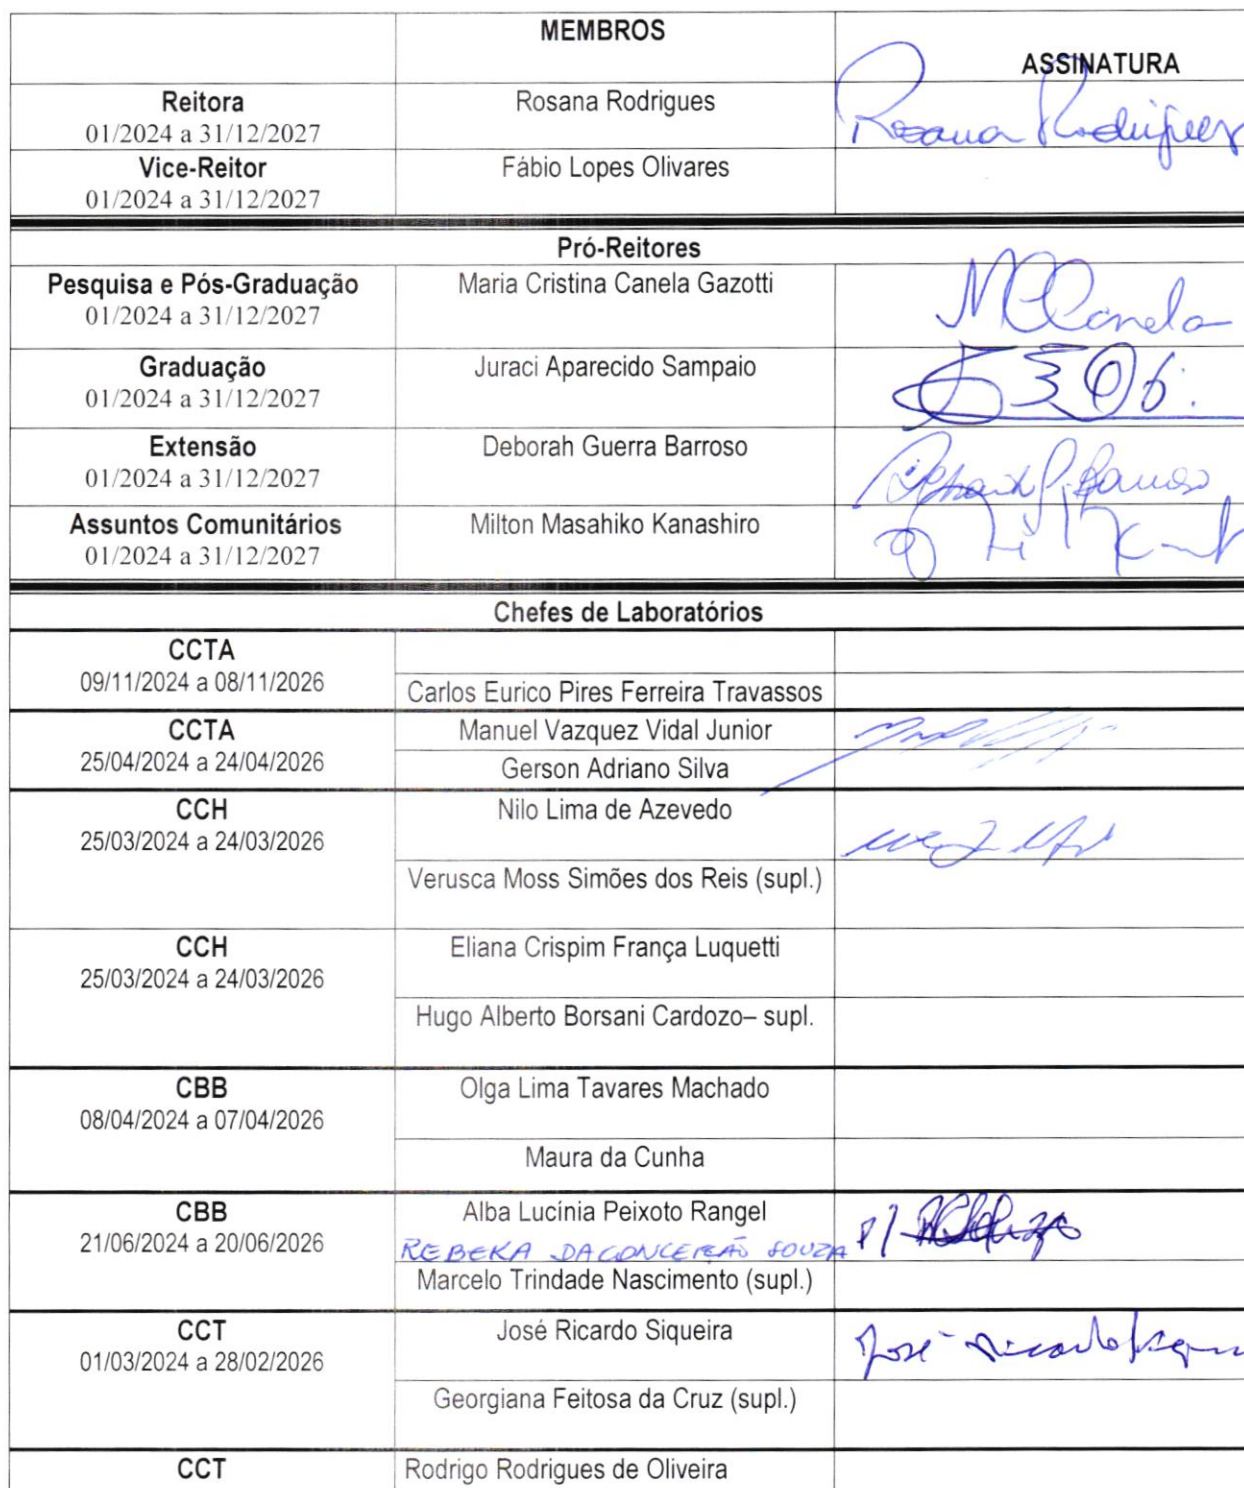 MEMBROS
ASSINATURA
Reitora
01/2024 a 31/12/2027
Rosana Rodrigues
Rosana Rodrigues
Vice-Reitor
01/2024 a 31/12/2027
Fábio Lopes Olivares
Pró-Reitores
Pesquisa e Pós-Graduação
01/2024 a 31/12/2027
Maria Cristina Canela Gazotti
MCCanela
Graduação
01/2024 a 31/12/2027
Juraci Aparecido Sampaio
Extensão
01/2024 a 31/12/2027
Deborah Guerra Barroso
Assuntos Comunitários
01/2024 a 31/12/2027
Milton Masahiko Kanashiro
Chefes de Laboratórios
CCTA
09/11/2024 a 08/11/2026
Carlos Eurico Pires Ferreira Travassos
CCTA
25/04/2024 a 24/04/2026
Manuel Vazquez Vidal Junior
Gerson Adriano Silva
CCH
25/03/2024 a 24/03/2026
Nilo Lima de Azevedo
Verusca Moss Simões dos Reis (supl.)
CCH
25/03/2024 a 24/03/2026
Eliana Crispim França Luquetti
Hugo Alberto Borsani Cardozo– supl.
CBB
08/04/2024 a 07/04/2026
Olga Lima Tavares Machado
Maura da Cunha
CBB
21/06/2024 a 20/06/2026
Alba Lucínia Peixoto Rangel
REBEKA DA CONCEIÇÃO SOUZA
P/
Marcelo Trindade Nascimento (supl.)
CCT
01/03/2024 a 28/02/2026
José Ricardo Siqueira
José Ricardo Siqueira
Georgiana Feitosa da Cruz (supl.)
CCT
Rodrigo Rodrigues de Oliveira